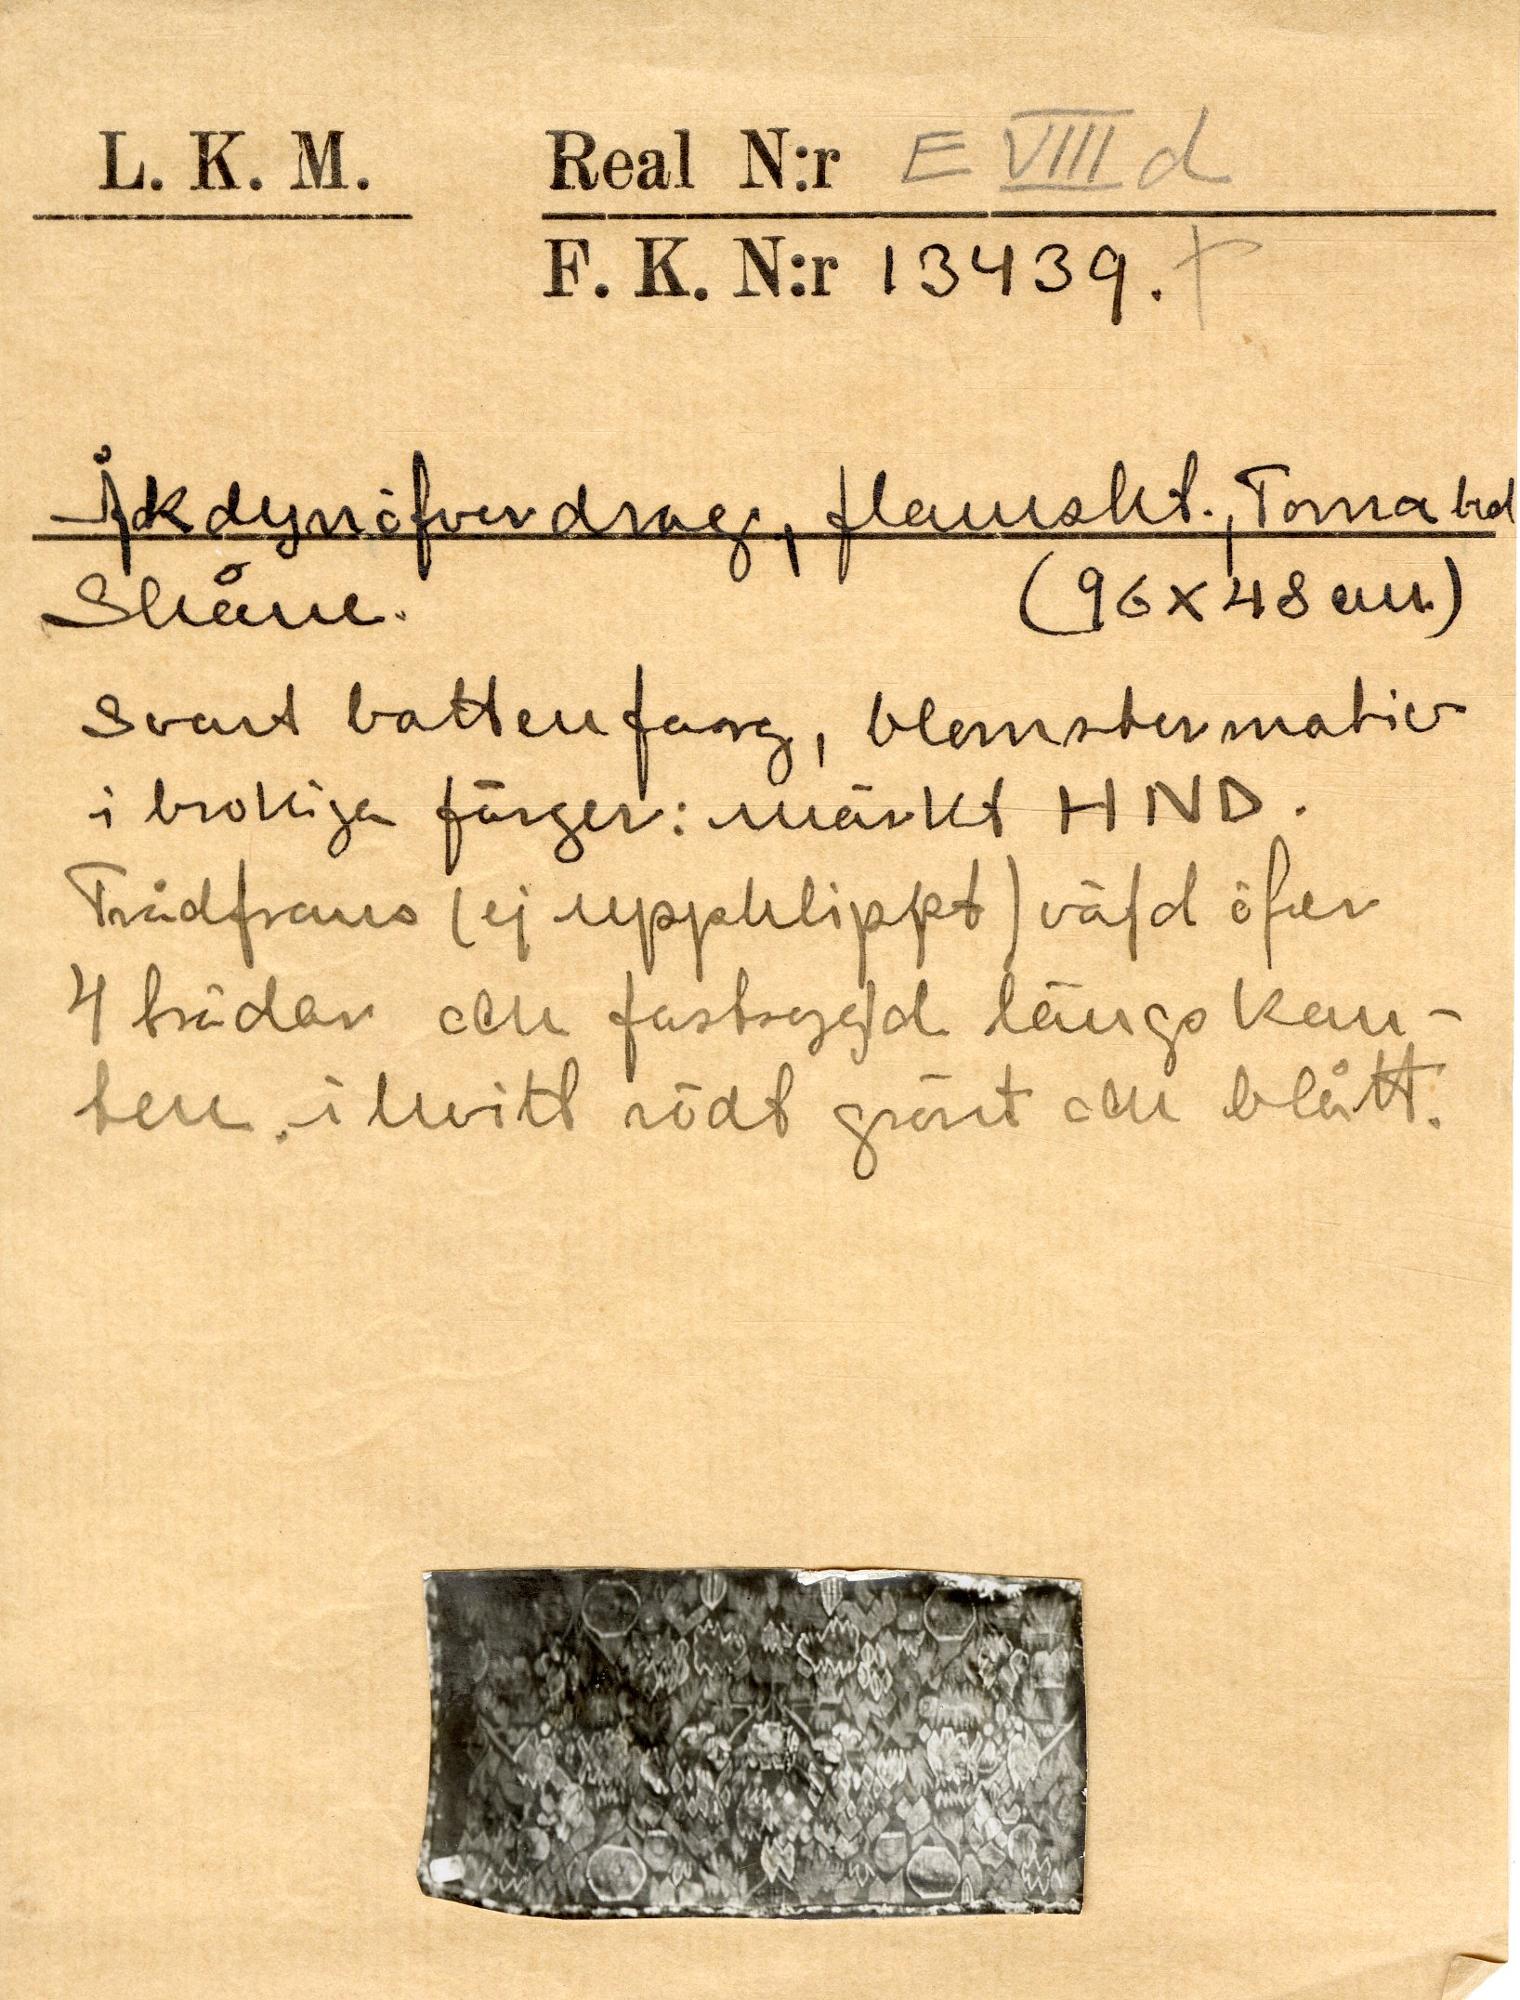 L. K. M. Real N:r E VIII d
F. K. N:r 13439. +
Åkdynöfverdrag, flamskt., Torna hd
Skåne. (96 x 48 cm.)
Svart bottenfärg, blomstermotiv
i brokiga färger: märkt HND.
Trådfrans (ej uppklippt) väfd öfver
4 trådar och fastsydd längs kan-
ten. i hvitt rödt grönt och blått.